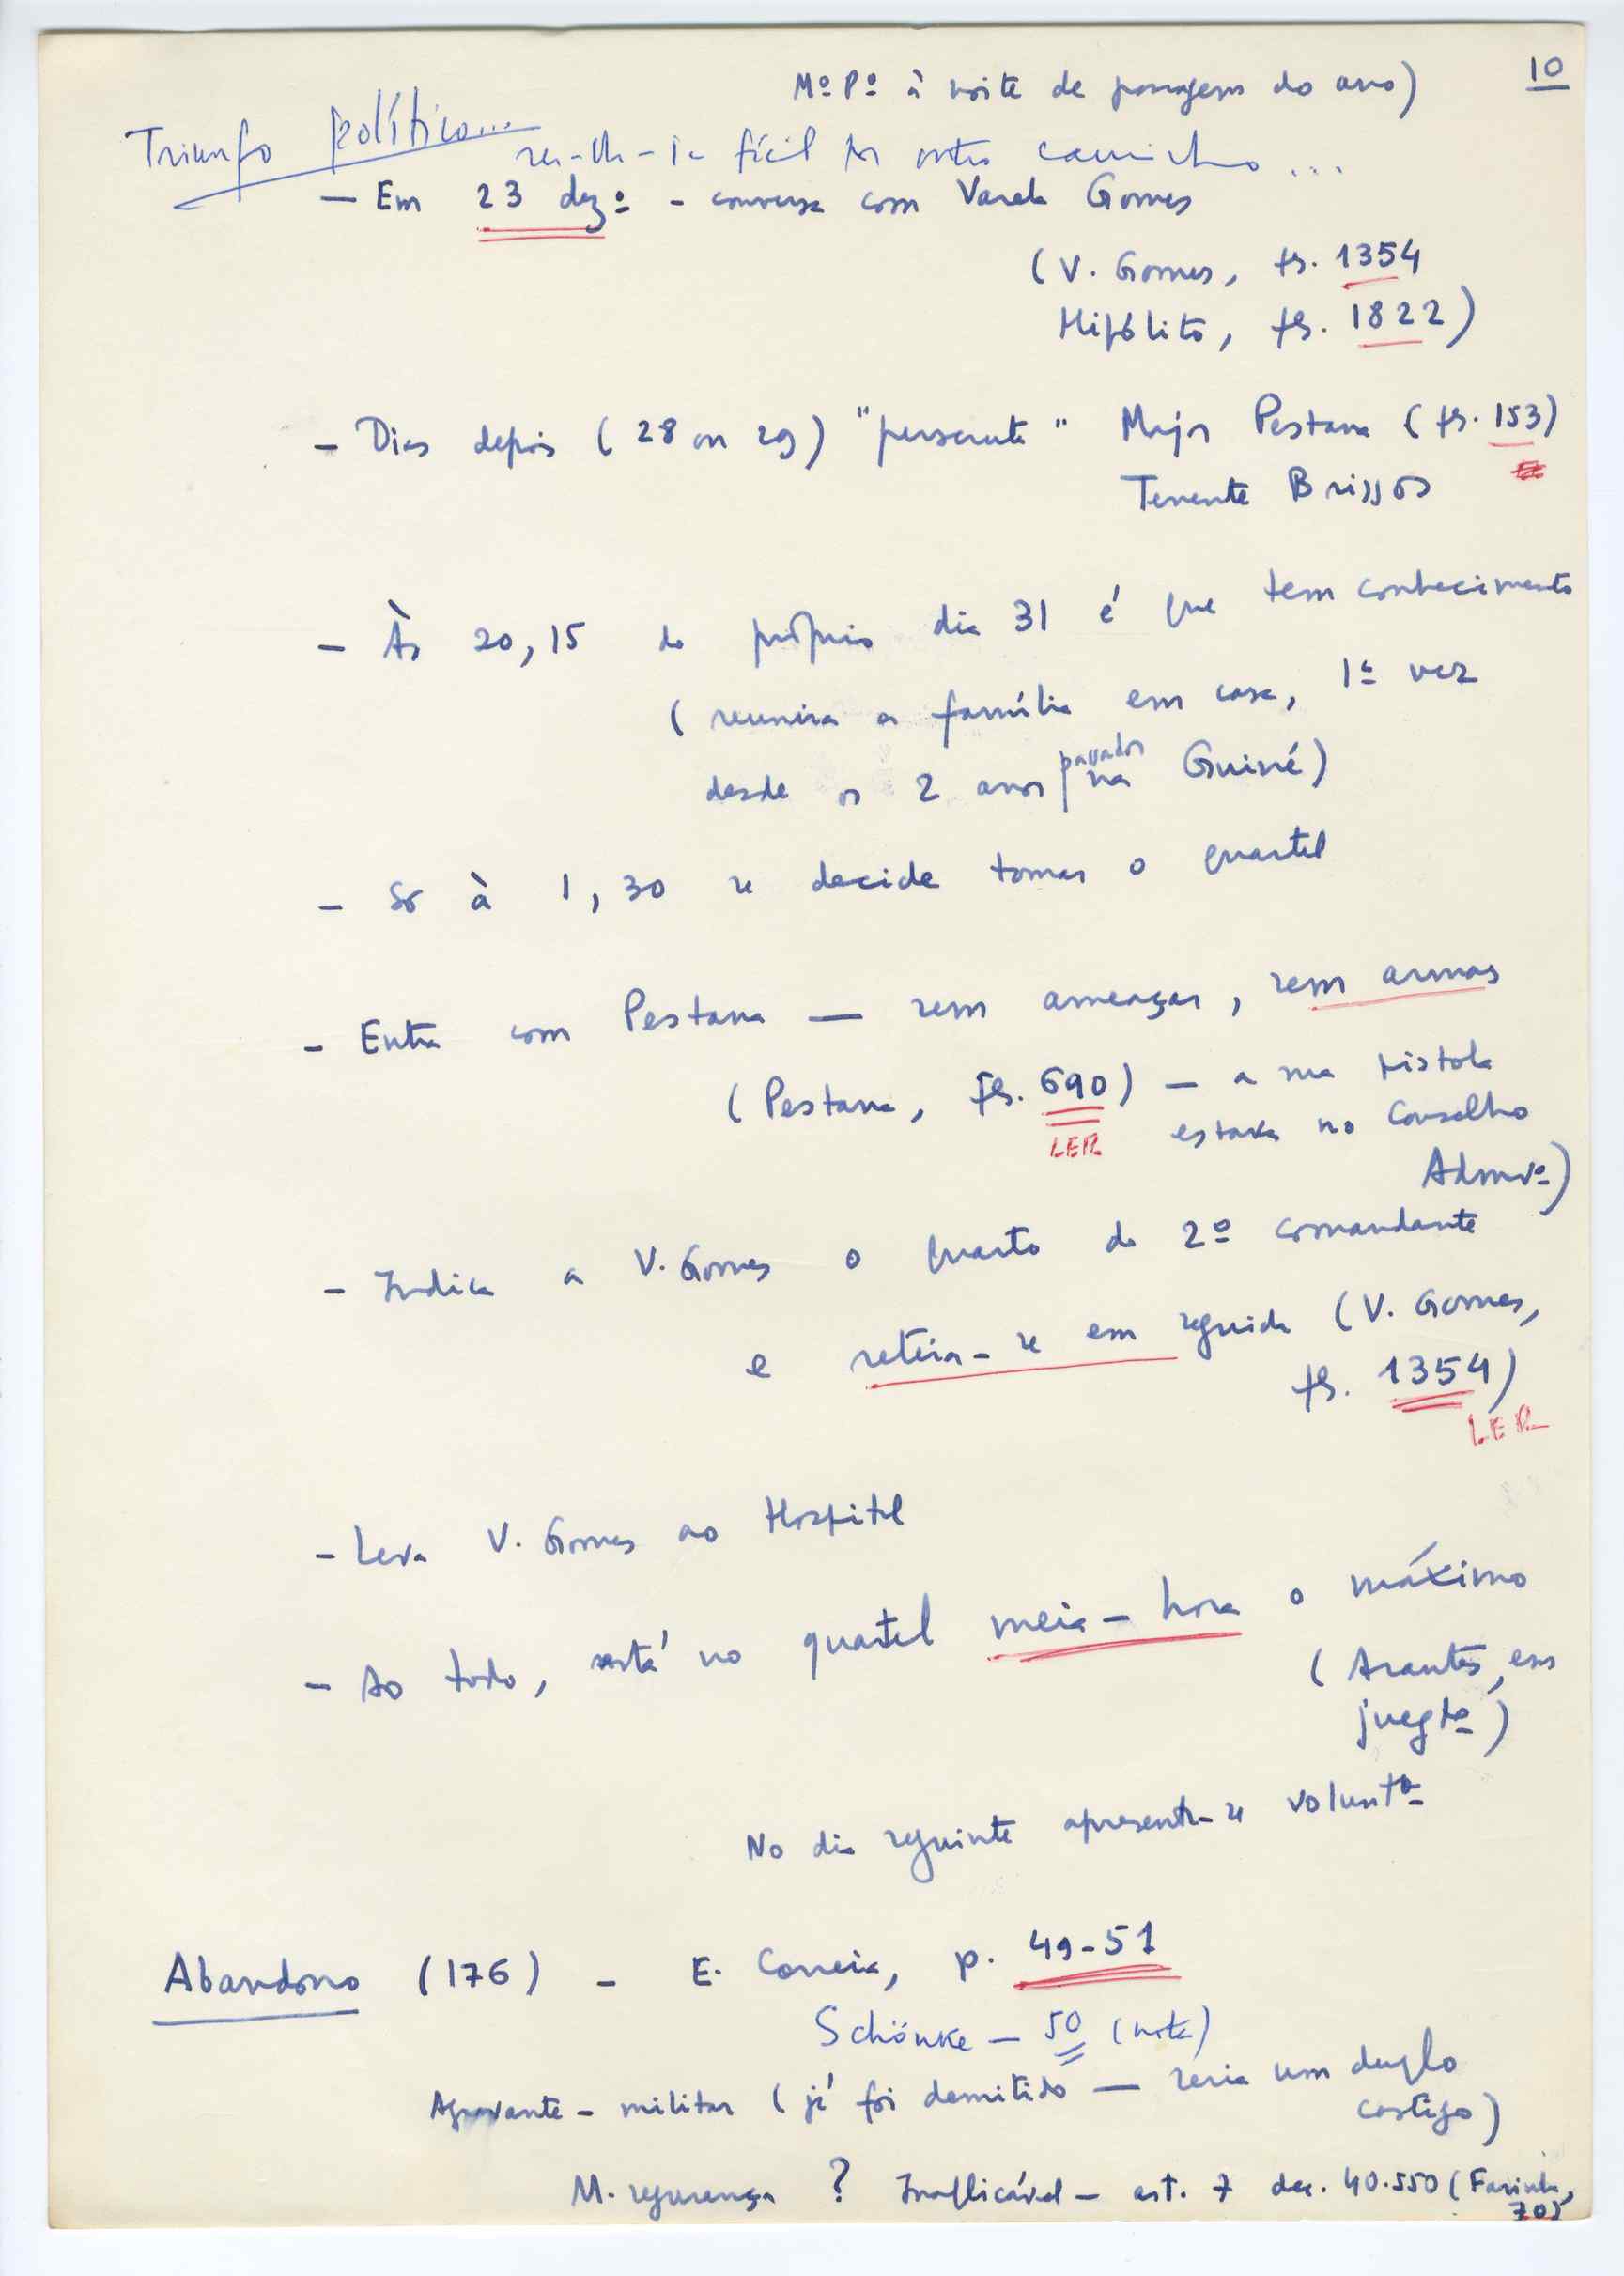 10
Mº Pº à noite de passagem do ano)
Triunfo político...
ser-lhe-ia fácil por outro caminho...
- Em 23 dezº - conversa com Varela Gomes
(V. Gomes, fs. 1354
Hipólito, fs. 1822)
- Dias depois (28 ou 29) "perscruta" Major Pestana (fs. 153)
Tenente Brissos
- Às 20,15 do próprio dia 31 é que tem conhecimento
(reunira a família em casa, 1ª vez
desde os 2 anos passados na Guiné)
- Só à 1,30 se decide tomar o quartel
- Entra com Pestana — sem ameaças, sem armas
(Pestana, fs. 690) - a sua pistola
LER estava no Conselho
Admvº)
- Indica a V. Gomes o quarto do 2º comandante
e retira-se em seguida (V. Gomes,
fs. 1354)
LER
- Leva V. Gomes ao Hospital
- Ao todo, está no quartel meia-hora o máximo
(Arantes, em
julgtº)
No dia seguinte apresenta-se voluntº
Abandono (176) - E. Correia, p. 49-51
Schönke - 50 (nota)
Agravante - militar (já foi demitido — seria um duplo
castigo)
M. segurança ? Inaplicável - art. 7 dec. 40.550 (Farinha,
70)